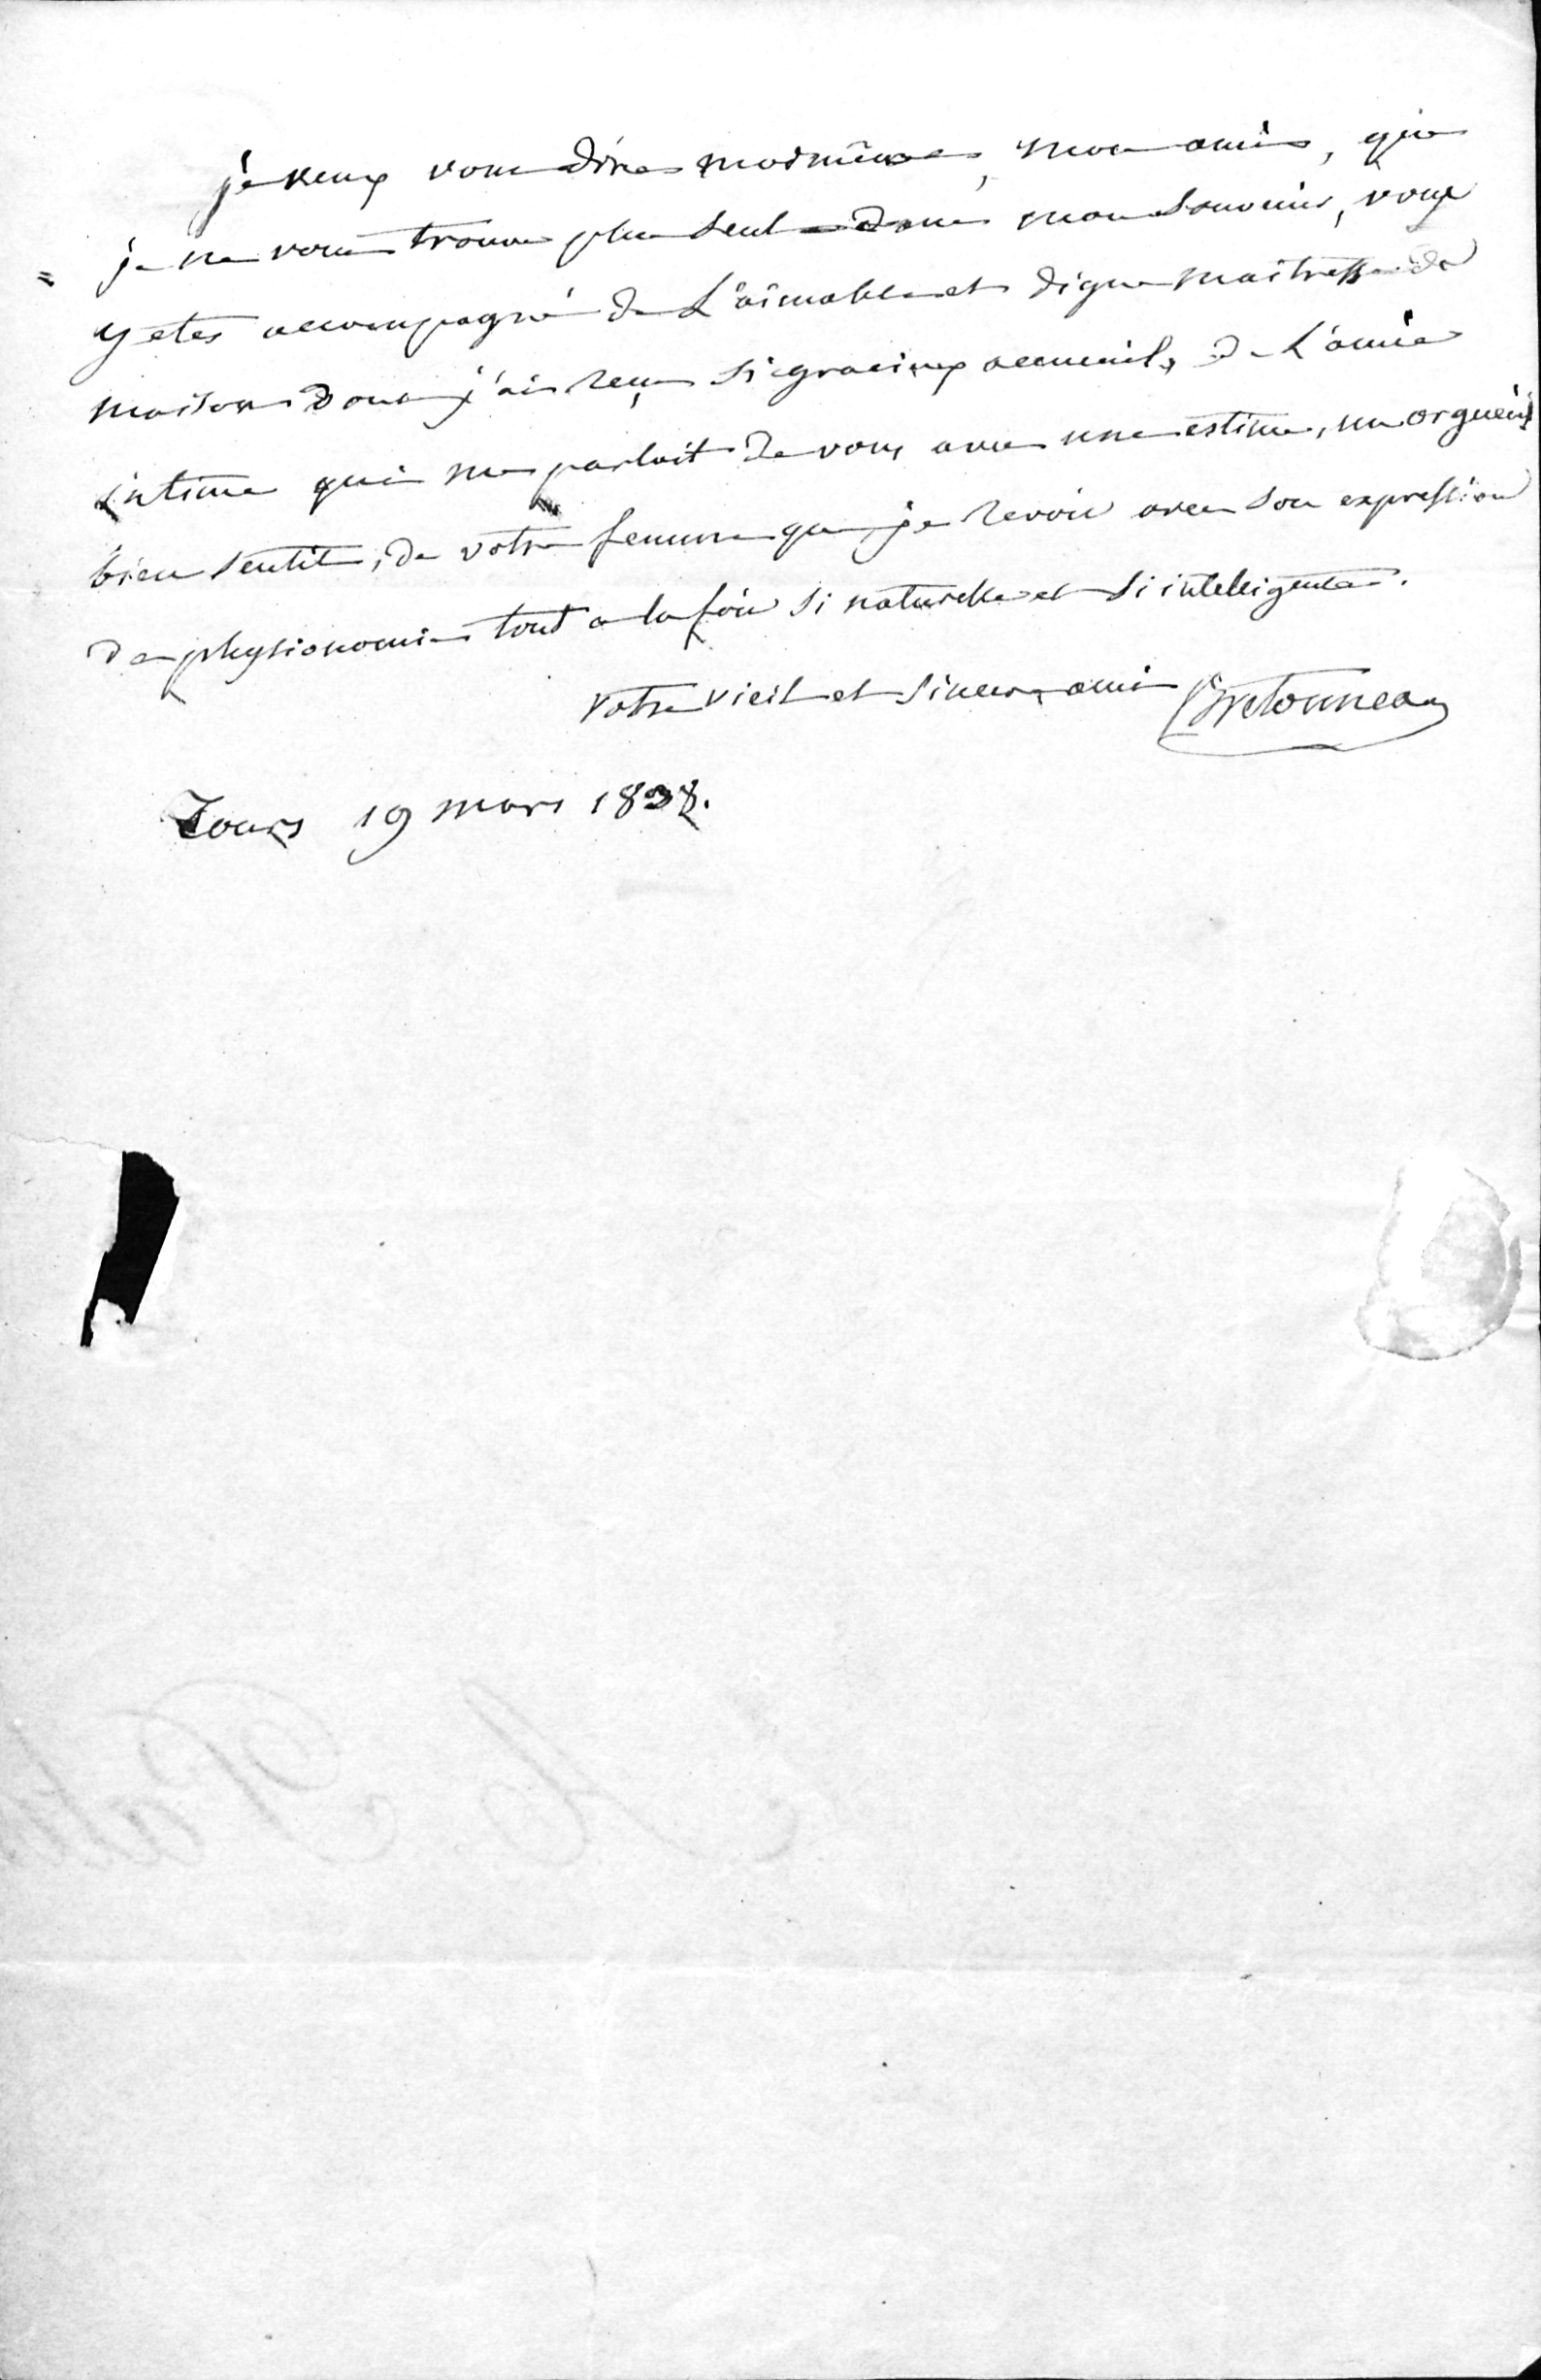 je veux vous dire moi même, mon ami, que
je ne vous trouve plus seul dans mon souvenir, vous
y etes accompagné de L'aimable et digne maitresse de
maison dont j'ai reçu si gracieux accueil, de L'amie
intime qui me parlait de vous avec une estime, un orgueil
bien sentit, de votre femme que je revois avec son expression
de physionomie tout a la fois si naturelle et si intelligente.
Votre vieil et sincere ami Bretonneau
Tours 19 mars 1838.